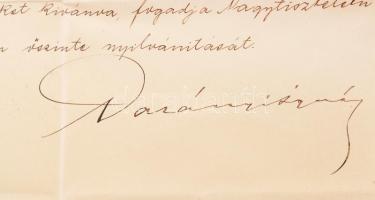 ket kivánva, fogadja Nagytiszteletű
őszinte nyilvánítását.
Darányi Ignác